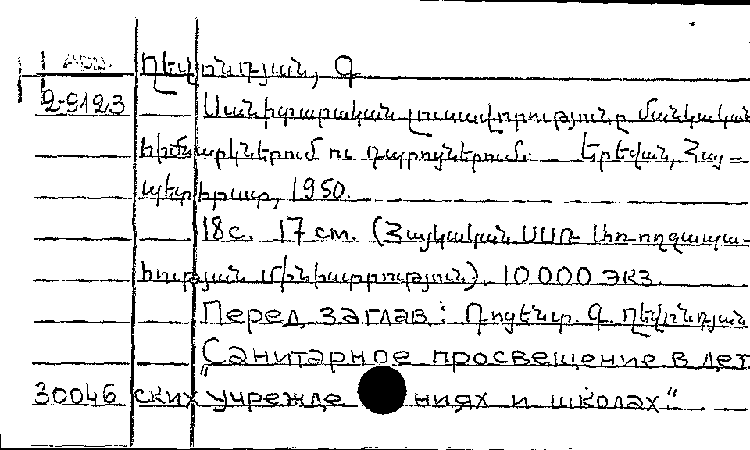 Ղևոնդյան, Գ.
2-9123 Սանիտարական լուսավորությունը մանկական
հիմնարկներում ու դպրոցներում. — Երևան, Հայ-
պետհրատ, 1950.
18 с. 17 см. (Հայկական ՍՍՌ Առողջապա-
հության մինիստրություն). 10000 экз.
Перед заглав: Դոցենտ Գ. Ղևոնդյան
"Санитарное просвещение в дет
30046 ских учрежде ниях и школах"